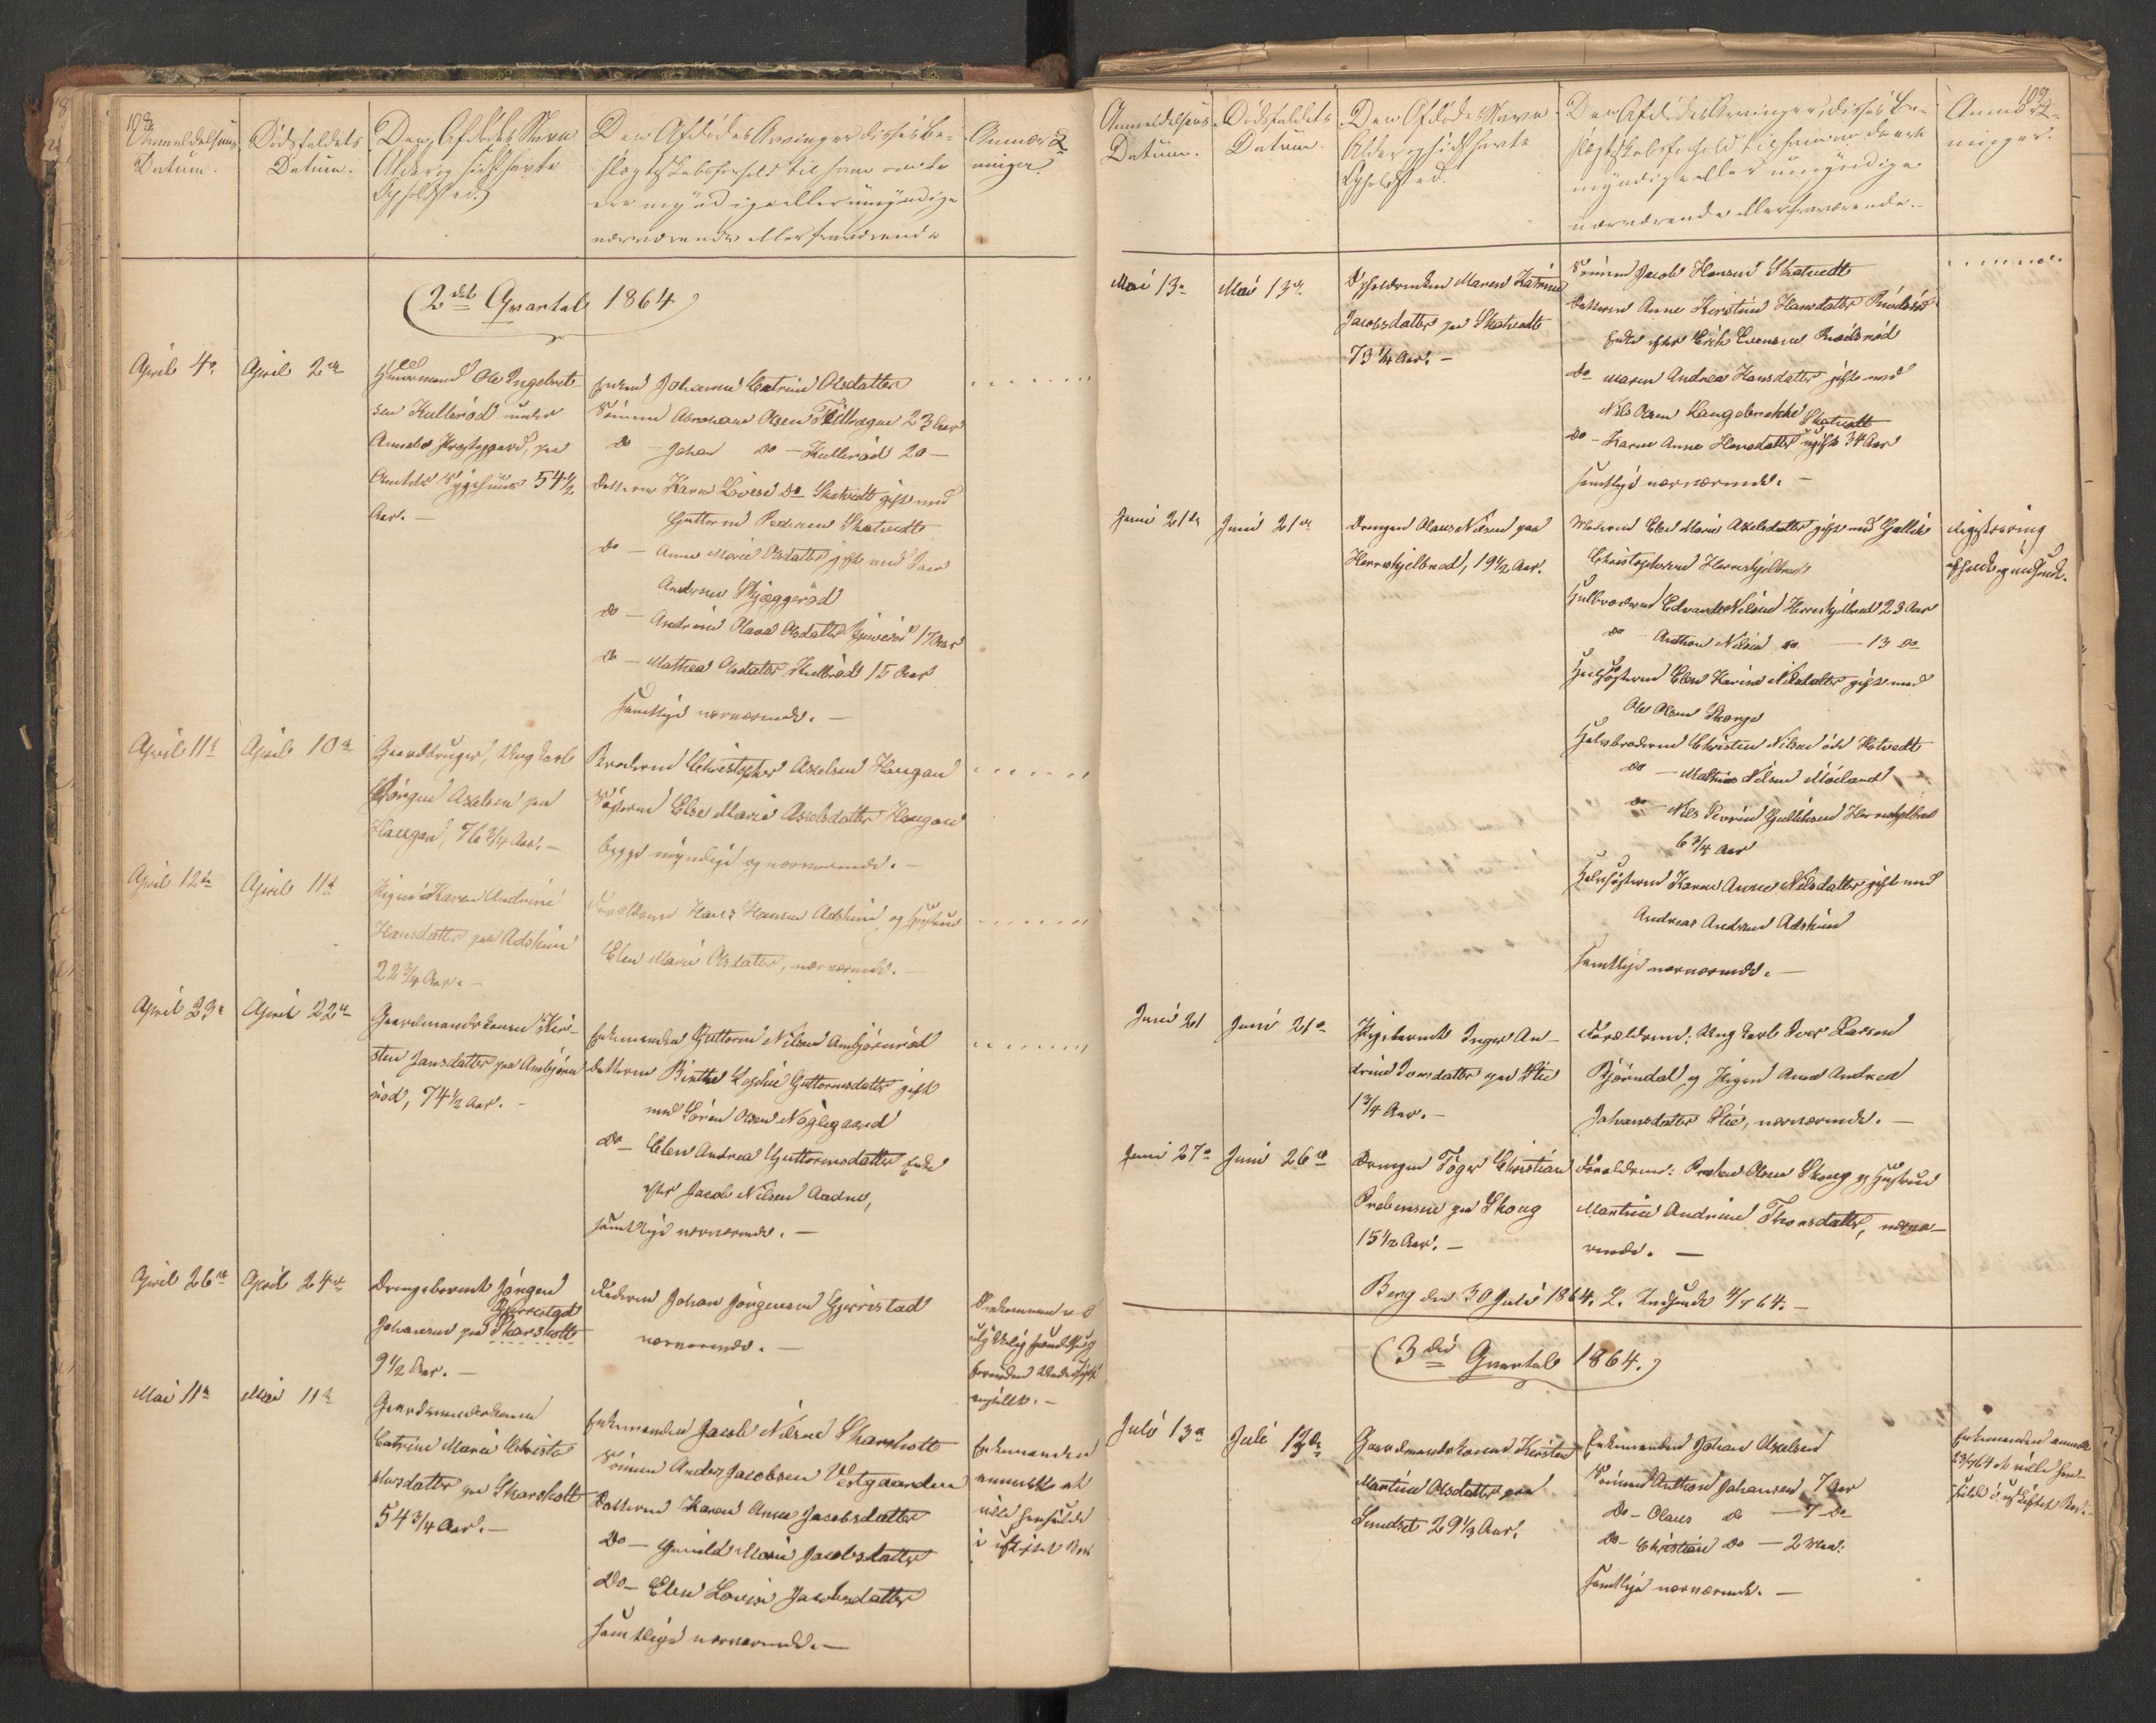 108
Anmeldelsens
Datum.
Dødsfaldets
Datum.
Den Afdødes Navn
Alder og sidst havte
Opholdsted.
Den Afdødes Arvinger disses Be-
slægtskabsforhold til ham om de
ere myndige eller umyndige
nærværende eller fraværende
Anmærk-
ninger.
2det Qvartal 1864
April 4de
April 2den
Huusmand Ole Ingebret-
sen Kullerød under
Præstegaard, paa
Amtets Sygehuus 54 1/2
Aar. —
Enken Johanne Catrine Olsdatter
Sønnen Abraham Olsen 23 Aar
do — Johan do — Kullerød 20 —
Datteren Karen Lovise do Skatvedt gift med
Guttorm Pedersen Skatvedt
do — Anne Marie Olsdatter gift med Iver
Andersen Skjæggerød
do — Andrine Olava Olsdatter 17 Aar
do — Mathea Olsdatter Kullerød 15 Aar
samtlige nærværende. —
April 11te
April 10de
Gaardbruger, Ungkarl
Jørgen Axelsen paa
Haugan, 76 3/4 Aar. —
Broderen Christopher Axelsen Haugan
Søsteren Else Marie Axelsdatter Haugan
begge myndige og nærværende. —
April 12te
April 11te
Pigen Karen Andrine
Hansdatter paa Adskim
22 3/4 Aar. —
Forældrene Hans Hansen Adskim og Hustrue
Elen Marie Olsdatter, nærværende.
April 23de
April 22de
Gaardmandskonen Kir-
sten Jansdatter paa Ambjørn
rød, 74 1/2 Aar. —
Enkemanden Guttorm Nilsen Ambjørnrød
Datteren Birthe Sophie Guttormsdatter gift
med Søren Olsen Nøglegaard
do — Elen Andrea Guttormsdatter Enke
efter Jacob Nilsen Aadne,
samtlige nærværende. —
April 26de
April 24de
Drengebarnet Jørgen
Gjerrestad
Johansen paa Skarsholt
9 1/2 Aar. —
Faderen Johan Jørgensen Gjerrestad
nærværende. —
Mai 11te
Mai 11te
Gaardmandskonen
Catrine Marie Christo
phersdatter paa Skarsholt
54 3/4 Aar. —
Enkemanden Jacob Nilsen Skarsholt
Sønnen Anders Jacobsen Vestgaarden
Datteren Karen Anne Jacobsdatter
Do — Gunild Marie Jacobsdatter
Do — Elen Lovise Jacobsdatter
samtlige nærværende. —
Enkemanden
anmeldte at
ville hensidde
i uskiftet Bo
109
Anmeldelsens
Datum.
Dødsfaldets
Datum.
Den Afdødes Navn
Alder og sidst havte
Opholdsted.
Den Afdødes Arvinger disses Be-
slægtskabsforhold til ham om de ere
myndige eller umyndige
nærværende eller fraværende. —
Anmærk-
ninger.
Mai 13de
Mai 13de
Maren Katrine
Jacobsdatter paa Skatvedt
73 1/4 Aar. —
Sønnen Jacob Hansen Skatvedt
Datteren Anne Kirstine Hansdatter
Enke efter Erik Evensen
do Maren Andrea Hansdatter gift med
Nils Olsen Langebrekke
Skatvedt
do — Karen Anne Hansdatter ugift 34 Aar
samtlige nærværende. —
Juni 21de
Juni 21de
Drengen Olaus Nilsen paa
Herreskjelbred, 19 1/2 Aar.
Moderen Else Marie Axelsdatter gift med Gullik
Christophersen Herreskjelbred
Helbroderen Edvard Nilsen Herreskjelbred 23 Aar
do — Anthon Nilsen do — 13 do
Helsøsteren Elen Karine Nilsdatter gift med
Ole Olsen
Halvbroderen Christen Nilsen Hotvedt
do — Mathias Nilsen Moeland
do — Nils Severin Gulliksen Herreskjelbred
6 3/4 Aar
Halvsøsteren Karen Anne Nilsdatter gift med
Andreas Andersen Adskim
samtlige nærværende. —
Registrering
Juni 21
Juni 21de
Pigebarnet Inger An-
drine Iversdatter paa Stie
1 3/4 Aar. —
Forældrene: Ungkarl Iver Larsen
Bjørndal og Pigen Anne Andrea
Johansdatter Stie, nærværende. —
Juni 27de
Juni 26de
Drengen Christian
Prebensen paa Skoug
15 1/2 Aar. —
Forældrene: Preben Olsen Skoug og Hustrue
Martine Andrine Thorsdatter, nærvæ-
rende. —
Berg den 30 Juli 1864. L. Indsendt 4/7 64. —
3die Qvartal 1864.
Juli 13de
Juli 12de
Gaardmandskonen Kirsten
Martine Olsdatter paa
Sundset 29 1/3 Aar.
Enkemanden Johan Axelsen
Sønnen Anthon Johansen 7 Aar
Do — Olaus do — 7 do
Do — Christian do — 2 Maan:
samtlige nærværende. —
Enkemanden anmeldte
at ville hen-
sidde i uskiftet Bo. —